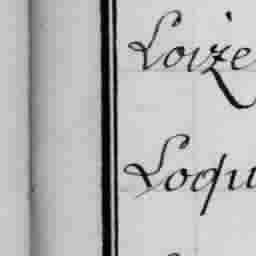 Loize
Loqu